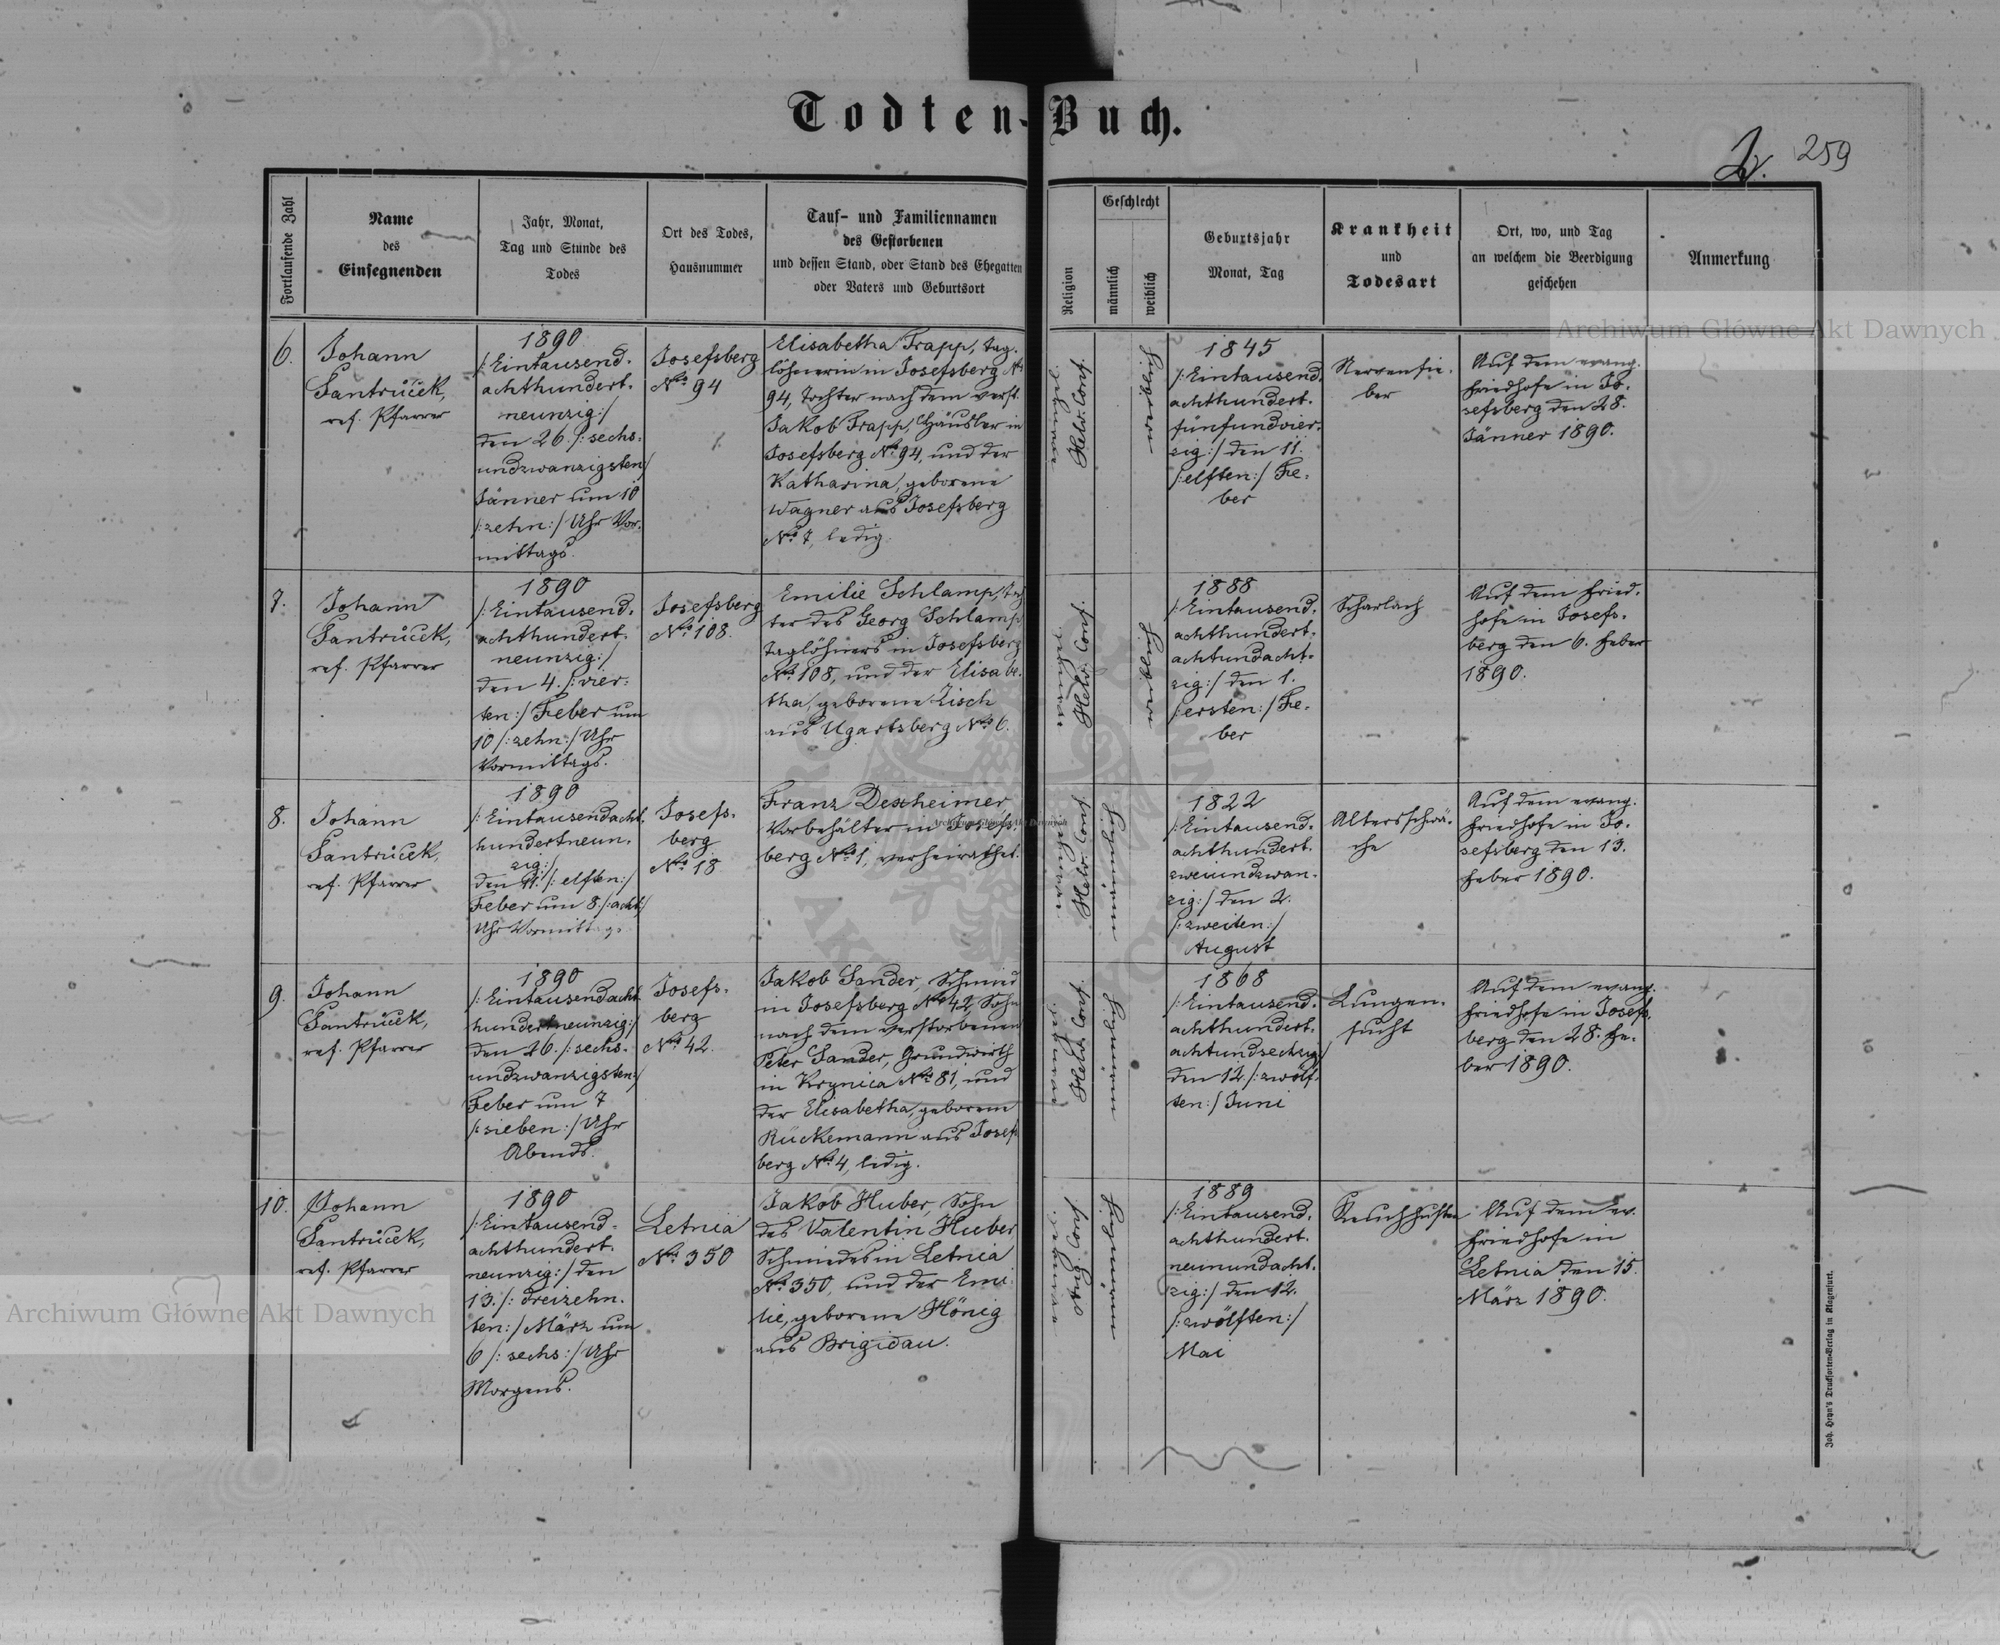 Todten-Buch.
259
Fortlaufende Zahl
Name
des
Einsegnenden
Jahr, Monat,
Tag und Stunde des
Todes
Ort des Todes,
Hausnummer
Tauf- und Familiennamen
des Gestorbenen
und dessen Stand, oder Stand des Ehegatten
oder Vaters und Geburtsort
Religion
Geschlecht
männlich
weiblich
Geburtsjahr
Monat, Tag
Krankheit
und
Todesart
Ort, wo, und Tag
an welchem die Beerdigung
geschehen
Anmerkung
6.
Johann
Jantrůček,
ref. Pfarrer
1890
/:Eintausend-
achthundert-
neunzig:/
den 26. /:sechs-
undzwanzigsten:/
Jänner um 10
/:zehn:/ Uhr Vor-
mittags.
Josefsberg
No 94
Elisabetha Trapp, Tag-
löhnerin in Josefsberg No
94, Tochter nach dem verst.
Jakob Trapp, Häusler in
Josefsberg No 94, und der
Katharina, geborene
Wagner aus Josefsberg
No 7, ledig.
Helv. Conf.
1845
/:Eintausend-
achthundert-
fünfundvier-
zig:/ den 11.
/:elften:/ Fe-
ber
Nervenfie-
ber
Auf dem evang.
Friedhofe in Jo-
sefsberg den 28.
Jänner 1890.
7.
Johann
Jantrůček,
ref. Pfarrer
1890
/:Eintausend-
achthundert-
neunzig:/
den 4. /:vier-
ten:/ Feber um
10 /:zehn:/ Uhr
Vormittags.
Josefsberg
No 108.
Emilie Schlamp, Toch-
ter des Georg Schlamp
Taglöhners in Josefsberg
No 108, und der Elisabe-
tha, geborene Zisch
aus Ugartsberg No 6.
Helv. Conf.
1888
/:Eintausend-
achthundert-
achtundacht-
zig:/ den 1.
/:ersten:/ Fe-
ber
Scharlach
Auf dem Fried-
hofe in Josefs-
berg den 6. Feber
1890.
8.
Johann
Jantrůček,
ref. Pfarrer
1890
/:Eintausendacht-
hundertneun-
zig:/
den 11. /:elften:/
Feber um 8 /:acht:/
Uhr Vormittags
Josefs-
berg
No 18
Franz Dexheimer,
Vorbehälter in Josefs-
berg No 1, verheirathet.
Helv. Conf.
1822
/:Eintausend-
achthundert-
zweiundzwan-
zig:/ den 2.
/:zweiten:/
August
Altersschwä-
che
Auf dem evang.
Friedhofe in Jo-
sefsberg den 13.
Feber 1890.
9.
Johann
Jantrůček,
ref. Pfarrer
1890
/:Eintausendacht-
hundertneunzig:/
den 26. /:sechs-
undzwanzigsten:/
Feber um 7
/:sieben:/ Uhr
Abends.
Josefs-
berg
No 42.
Jakob Sander, Schmied
in Josefsberg No 42, Sohn
nach dem verstorbenen
Peter Sander, Grundwirth
in Krynica No 81, und
der Elisabetha, geborene
Rückemann aus Josefs-
berg No 4, ledig.
Helv. Conf.
1868
/:Eintausend-
achthundert-
achtundsechzig:/
den 12. /:zwölf-
ten:/ Juni
Lungen-
sucht
Auf dem evang.
Friedhofe in Josefs-
berg den 28. Fe-
ber 1890.
10.
Johann
Jantrůček,
ref. Pfarrer
1890
/:Eintausend-
achthundert-
neunzig:/ den
13. /:dreizehn-
ten:/ März um
6 /:sechs:/ Uhr
Morgens.
Letnia
No 350
Jakob Huber, Sohn
des Valentin Huber,
Schmiedes in Letnia
No 350, und der Emi-
lie, geborene Hönig
aus Brigidau.
Aug. Conf.
1889
/:Eintausend-
achthundert-
neunundacht-
zig:/ den 12.
/:zwölften:/
Mai
Keuchhusten
Auf dem ev.
Friedhofe in
Letnia den 15.
März 1890.
Joh. Heyn's Drucksorten-Verlag in Klagenfurt.
Archiwum Główne Akt Dawnych
Archiwum Główne Akt Dawnych
Archiwum Główne Akt Dawnych